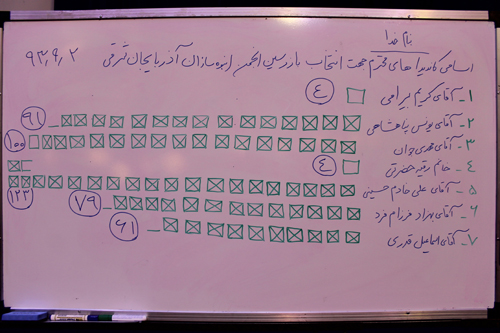 بنام خدا
اسامی کاندیدا های محترم جهت انتخاب بازرسین انجمن انبوه سازان آذربایجان شرقی ۹۳٫۹٫۲
۱- آقای کریم بیرامی ۴
۲- آقای یونس پناهشاهی ۹۱
۳- آقای مهدی جوان ۱۰۰
۴- خانم رقیه حضرتی ۴
۵- آقای علی خادم حسینی ۱۲۳
۶- آقای بهزاد فرزام فرد ۷۹
۷- آقای اسماعیل قدری ۶۱